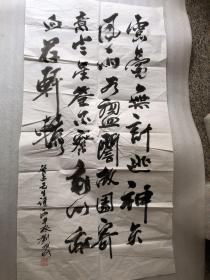 靈臺無計逃神矢
風雨如磐闇故園寄
意寒星荃不察我以我
血荐軒轅